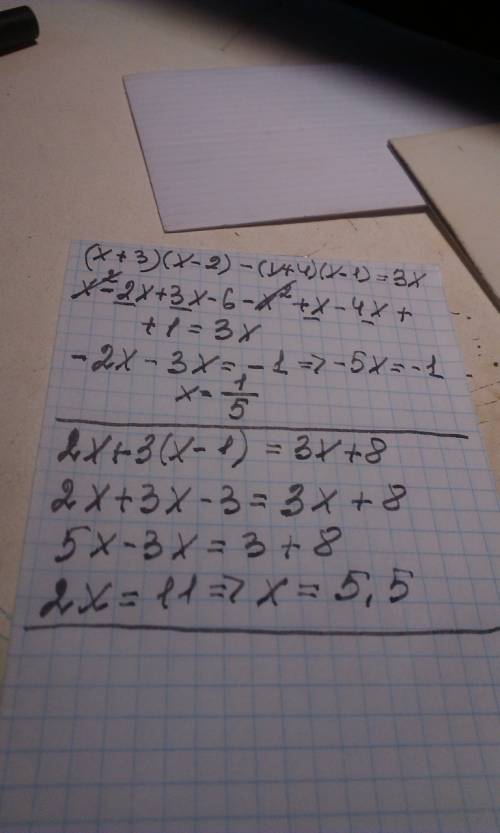 (x+3)(x-2)-(x+4)(x-1)=3x
x²-2x+3x-6-x²+x-4x+
+1=3x
-2x-3x=-1=>-5x=-1
x=1/5
2x+3(x-1)=3x+8
2x+3x-3=3x+8
5x-3x=3+8
2x=11=>x=5,5